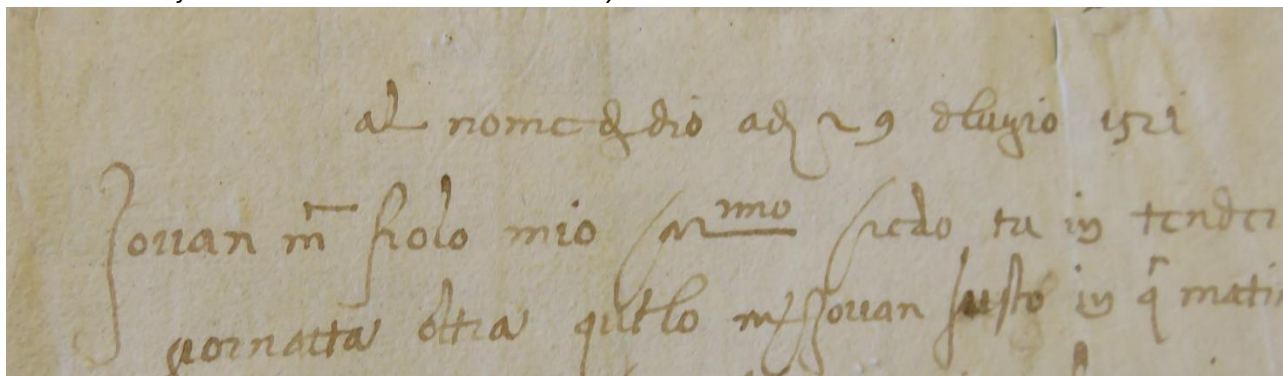 al nome de dio adj 29 de luzio 1521
Jouan m̄ fiolo mio carmo credo tu in tender
gornatta oltra quelo m Jouan justo in q̄ mati